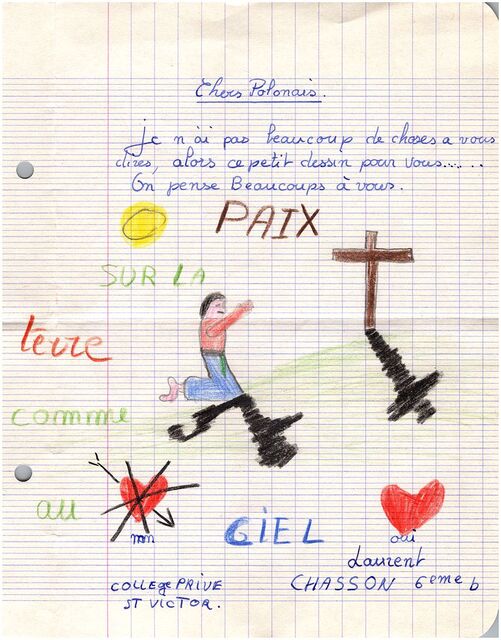 Chers Polonais.
Je n'ai pas beaucoup de choses a vous
dires, alors ce petit dessin pour vous......
On pense Beaucoups à vous.
PAIX
SUR LA
terre
comme
au
CIEL
non
oui
Laurent
CHASSON 6eme b
COLLEGE PRIVE
ST VICTOR.